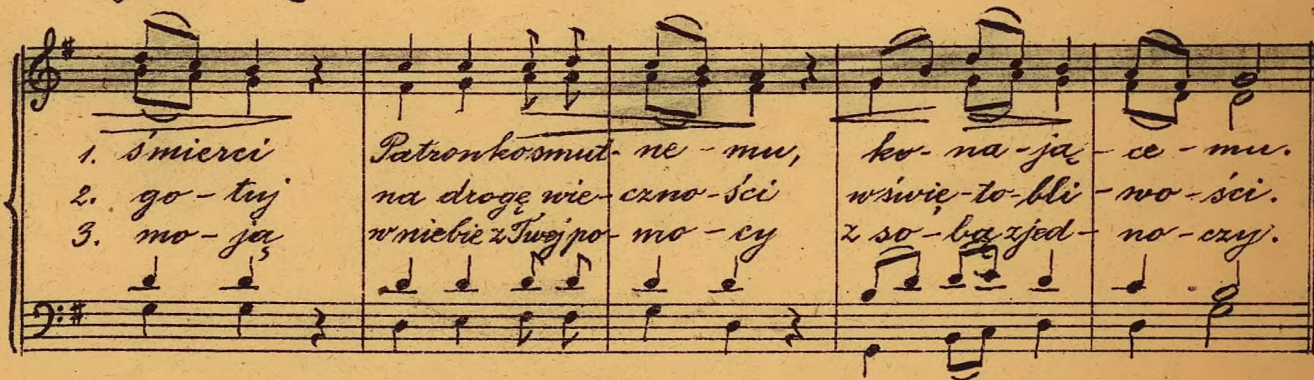 1. śmierci Patronko smut- ne - mu, ko - na - ją - ce - mu.
2. go - tuj na drogę wie - czno - ści w świę - to - bli - wo - ści.
3. mo - ją w niebie z Twej po - mo - cy z so - bą zjed - no - czy.